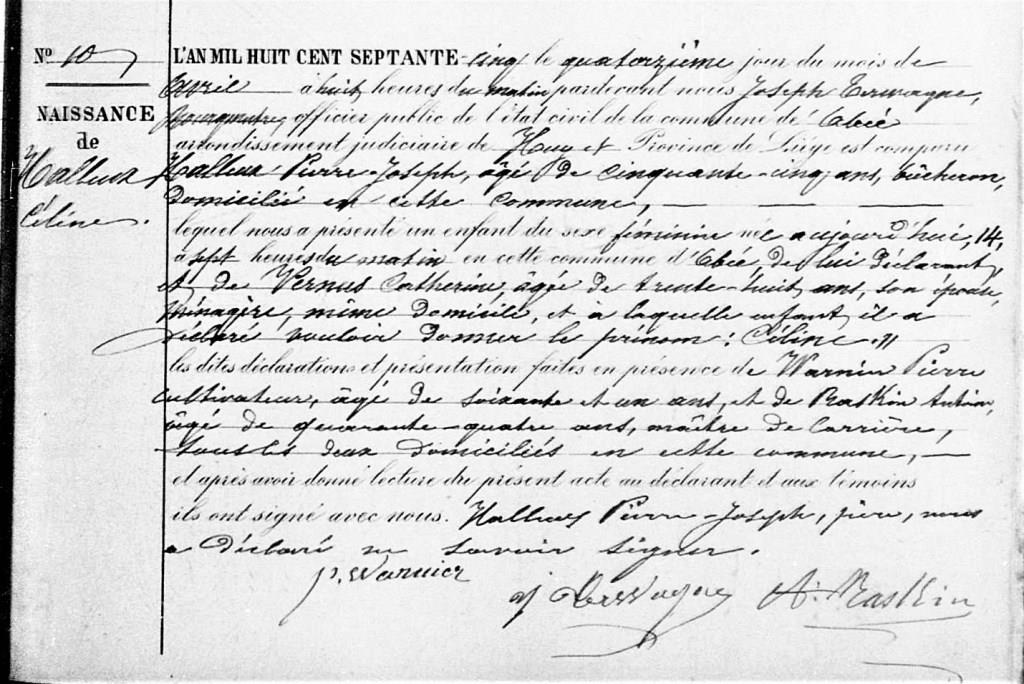 No 10
NAISSANCE
de
Halleux
Céline.
L'AN MIL HUIT CENT SEPTANTE-cinq le quatorzième jour du mois de
avril à huit heures du matin pardevant nous Joseph Terwagne,
Bourgmestre, officier public de l'état civil de la commune de Abée
arrondissement judiciaire de Huy et Province de Liége est comparu
Halleux Pierre-Joseph, âgé de cinquante-cinq ans, bûcheron,
domicilié en cette commune,
lequel nous a présenté un enfant du sexe féminin née aujourd'hui, 14,
à sept heures du matin en cette commune d'Abée, de lui déclarant,
et de Vernus Catherine, âgée de trente-huit ans, son épouse,
ménagère, même domicile, et à laquelle enfant, il a
déclaré vouloir donner le prénom: Céline.
les dites déclarations et présentation faites en présence de Warnier Pierre
cultivateur, âgé de soixante et un ans, et de Raskin
âgé de quarante-quatre ans, maître de carrière,
tous les deux domiciliés en cette commune,
et après avoir donné lecture du présent acte au déclarant et aux témoins
ils ont signé avec nous. Halleux Pierre-Joseph, père, nous
a déclaré ne savoir signer.
p. Warnier
J Terwagne A. Raskin